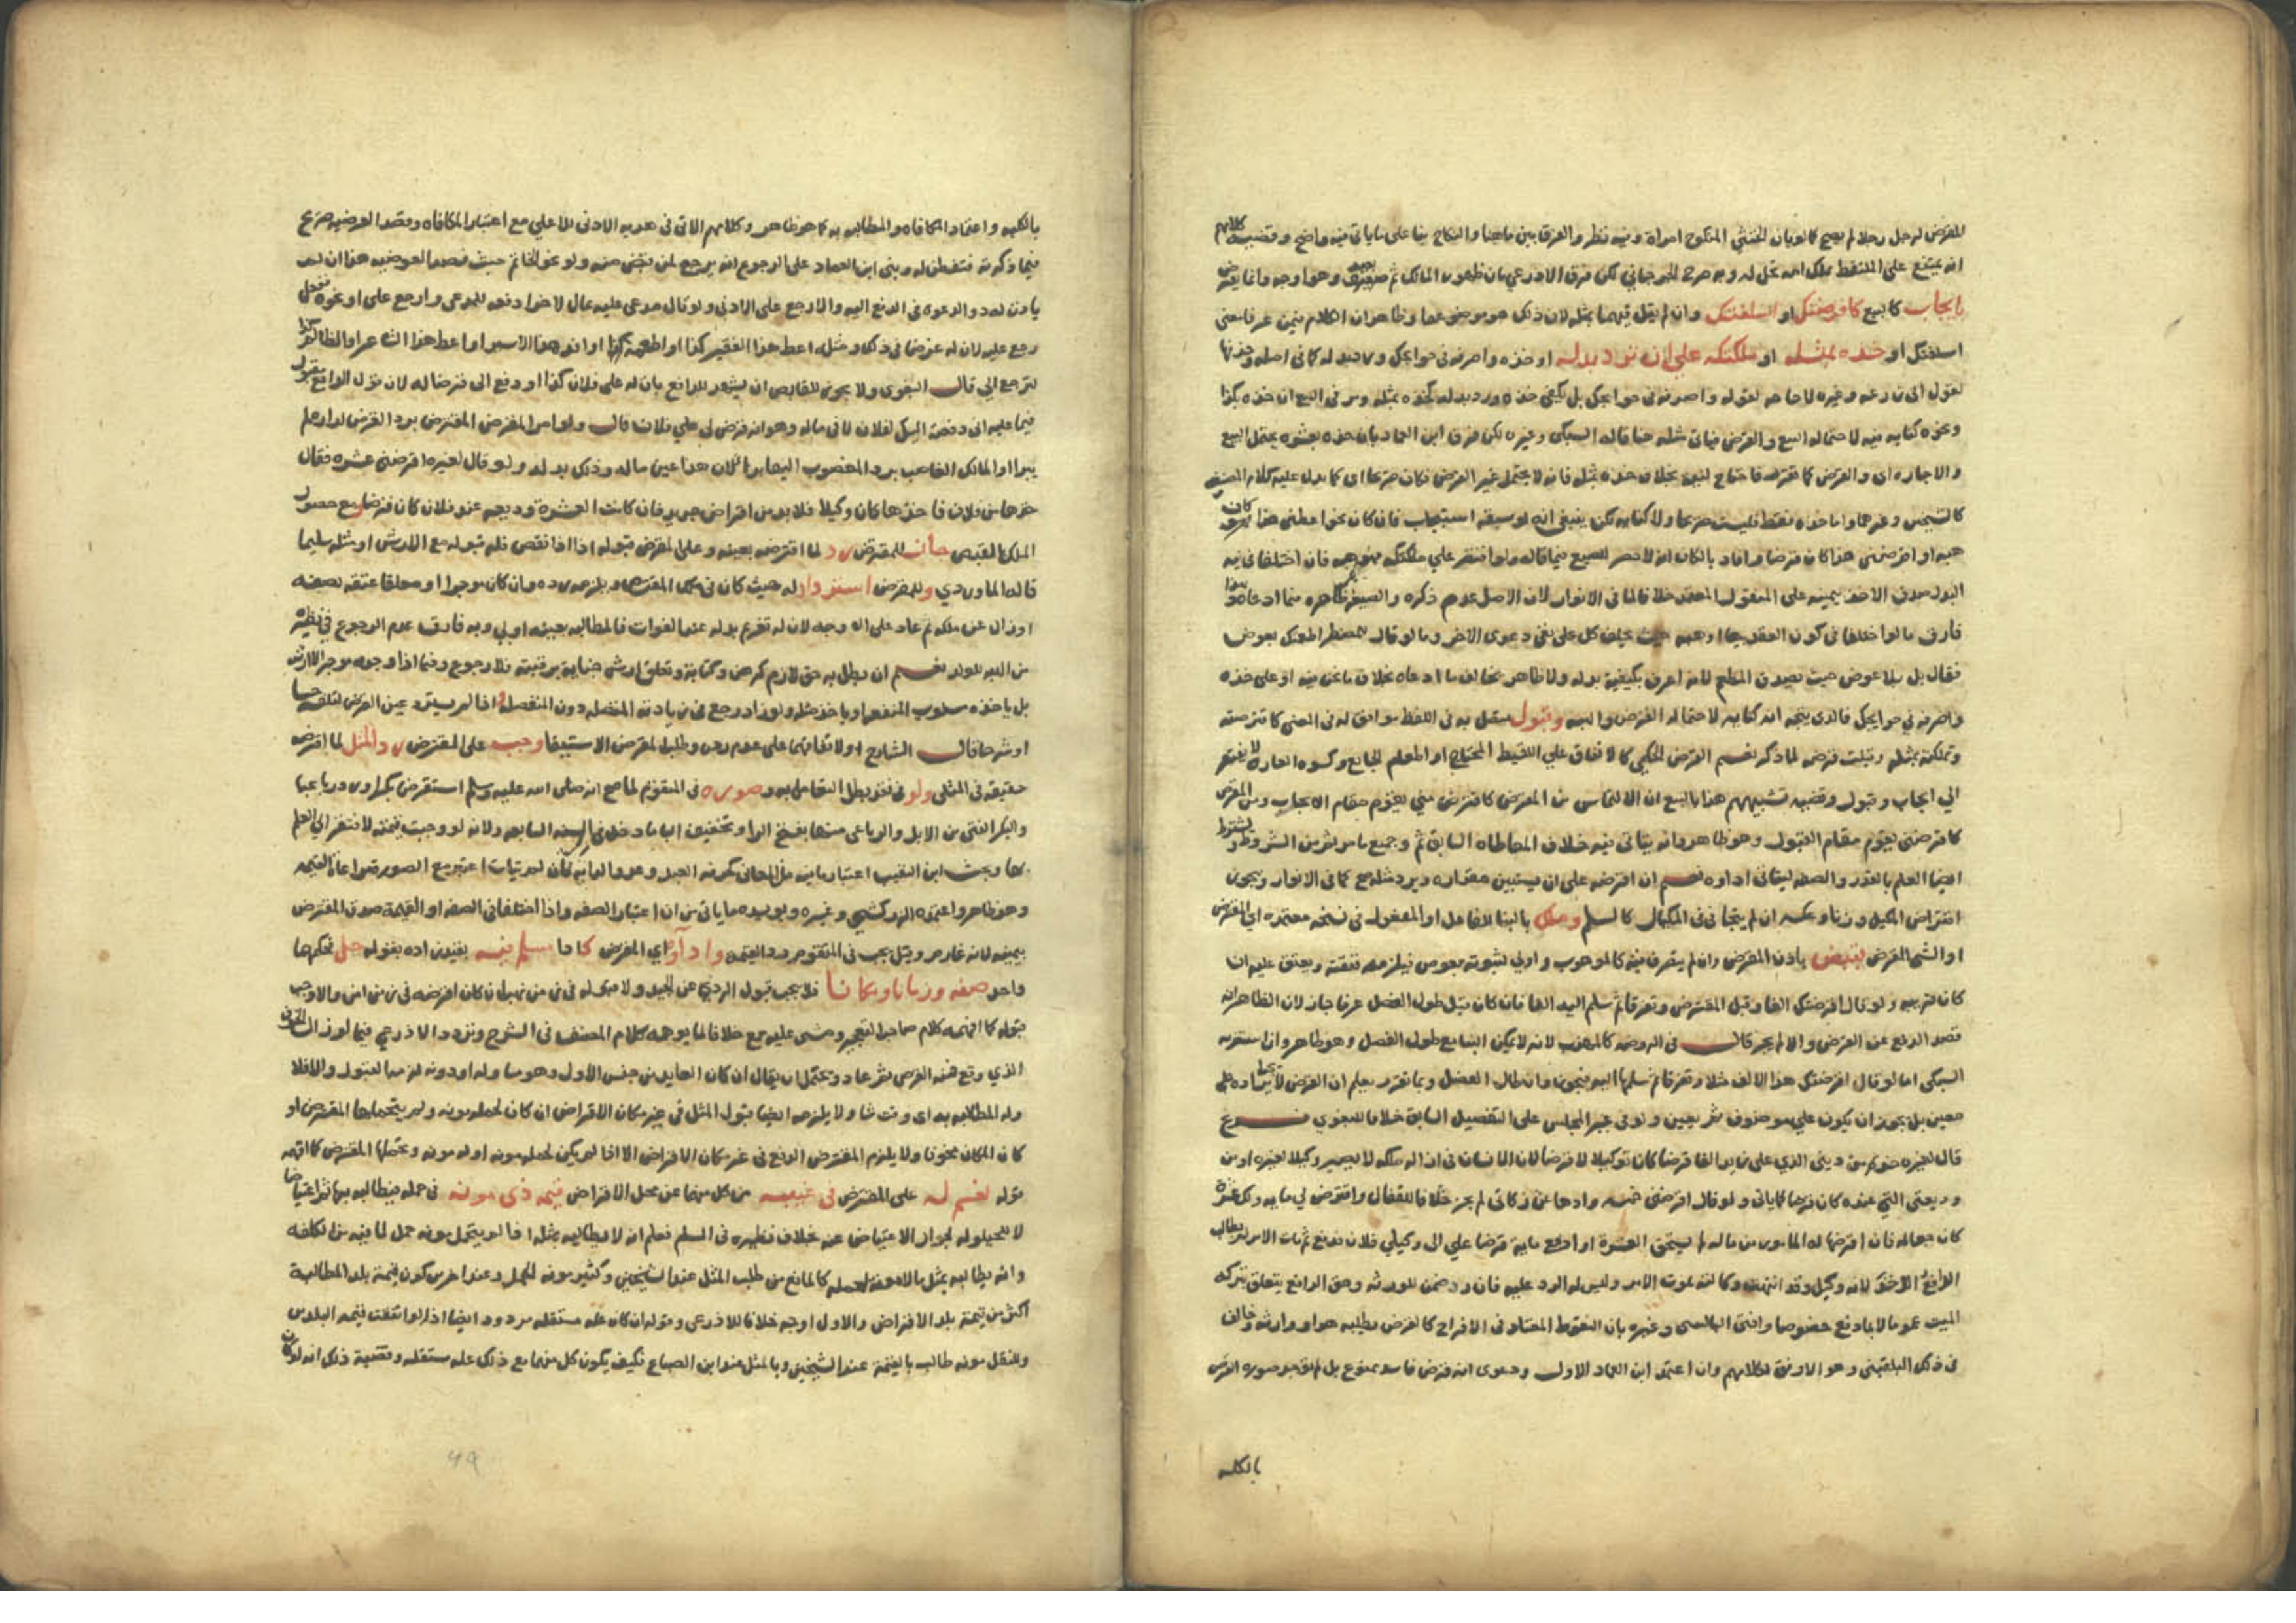 المقرض لرجل رجلا لم يصح كما لو بان الخنثى المنكوح امراة وفيه نظر والفرق بين ما هنا والنكاح بنا على ما ياتي فيه واضح وقضية كلامهم
انه يمتنع على الملتقط تملك امة تحل له وبه صرح الجرجاني لكن فرق الاذرعي بان ظهور المالك ثم بعيد وهو اوجه وانما يقترض
بايجاب كالبيع كاقرضتك او اسلفتك وان لم يقل فيهما بمثله لان ذلك هو موضوعهما وظاهر ان الكلام فيمن عرف معنى
اسلفتك او خذه بمثله او ملكتكه على ان ترد بدله او خذه واصرفه في حوايجك ورد بدله كما في اصله وحذفها
لقول الزركشي وغيره لا حاجة لقوله واصرفه في حوايجك بل يكفي خذه ورد بدله كخذه بمثله ومر في البيع ان خذه بكذا
ونحوه كناية فيه لاحتماله البيع والقرض فياتي مثله هنا قاله السبكي وغيره لكن فرق ابن العماد بان خذه بعشره يحتمل البيع
والاجارة اي والقرض كما تقرر فاحتاج لنية بخلاف خذه بمثله فانه لا يحتمل غير القرض فكان صريحا اي كما يدل عليه كلام المصنف
كالشيخين وغيرهما واما خذه فقط فليست صريحا ولا كناية لكن ينبغي انه لو سبقه استيجاب فان كان نحو اعطني هذا كان
هبة او اقرضني هذا كان قرضا وافاد بالكاف انه لا حصر للصيغ فيما قاله ولو اقتصر على ملكتكه فهو هبة فان اختلفا في نية
البدل صدق الاخذ بيمينه على المنقول المعتمد خلافا لما في الانوار لان الاصل عدم ذكره والصيغة ظاهرة فيما ادعاه وبهذا
فارق ما لو اختلفا في كون العقد بيعا او هبة حيث يحلف كل على نفي دعوى الاخر وما لو قال لمضطر اطعمتك بعوض
فقال بل بلا عوض حيث يصدق المطعم لانه اعرف بكيفية بذله ولا ظاهر يخالف ما ادعاه بخلاف ما نحن فيه او على خذه
واصرفه في حوايجك فالذي يتجه انه كناية لاحتماله القرض والهبة وقبول متصل به في اللفظ موافق له في المعنى كاقترضته
وتملكته بمثله وقبلت قرضه لما ذكر نعم القرض الحكمي كالانفاق على اللقيط المحتاج او اطعام الجايع وكسوة العاري لا يفتقر
الى ايجاب وقبول وقضية تشبيههم هذا بالبيع ان الالتماس من المقرض كاقترض مني يقوم مقام الايجاب ومن المقترض
كاقرضني يقوم مقام القبول وهو ظاهر وانه ياتي فيه خلاف المعاطاة السابق ثم وجميع ما مر ثم من الشروط ويشترط
ايضا العلم بالقدر والصفة ليتاتى اداوه نعم ان اقرضه على ان يستبين مقداره ويرد مثله صح كما في الانوار ويجوز
اقتراض المكيل وزنا وعكسه ان لم يتجافى في المكيال كالسلم وملك بالبنا للفاعل او المفعول في نسخة معتمدة اي المقترض
او الشي المقرض بقبض باذن المقرض وان لم يتصرف فيه كالموهوب واولى لثبوته بعوض فيلزمه نفقته ويعتق عليه ان
كان قريبه ولو قال اقرضتك الفا وقبل المقترض وتفرقا ثم سلم اليه الفا فان كان قبل طول الفصل عرفا جاز لان الظاهر انه
قصد الدفع عن القرض والا لم يجز قال في الروضة كالمهذب لانه لا يمكن البنا مع طول الفصل وهو ظاهر وان استغربه
السبكي اما لو قال اقرضتك هذا الالف مثلا وتفرقا ثم سلمها اليه فيجوز وان طال الفصل وبما تقرر يعلم ان القرض لا يشترط ايراده على
معين بل يجوز ان يكون على موصوف ثم يعين ولو في غير المجلس على التفصيل السابق خلافا للبغوي فرع
قال لغيره خذ من ديني الذي على زيد الفا قرضا كان توكيلا لا قرضا لان الانسان في ازالة ملكه لا يصير وكيلا لغيره او من
وديعتي التي عنده كان قرضا كما ياتي ولو قال اقرضني خمسة وادها عن زكاتي لم يجز خلافا للقفال واقترض لي ماية ولك عشرة
كان جعالة فان اقرضها له المامور من ماله لم يستحق العشرة او ادفع ماية قرضا علي الى وكيلي فلان فدفع ثم مات الامر لم يطالب
الدافع الاخذ لانه وكيل وقد انتهت وكالته بموت الامر وليس له الرد عليه فان رد ضمن للورثة وحق الدافع يتعلق بتركة
الميت عموما لا بما دفع خصوصا وافتى البالسي وغيره بان النقوط المعتاد في الافراح كالقرض يطلبه هو او وارثه وخالف
في ذلك البلقيني وهو الاوفق لكلامهم وان اعتمد ابن العماد الاول ودعوى انه قرض فاسد ممنوع بل لم يوجد صورة القرض
بالكلية
بالكلية واعتماد المكافاة والمطالبة به كما هو ظاهر وكلامهم الاتي في هدية الادنى للاعلى مع اعتبار المكافاة وقصد العوضية صريح
فيما ذكرته فتفطن له وبنى ابن العماد على الرجوع انه يرجع لمن نقض منه ولو نحو الخاتم حيث قصد العوضية هذا ان لم
ياذن لعدد والدعوة في الدفع اليه والا رجع على الاذن ولو قال مدعى عليه بمال لاخر ادفعه للمدعي وارجع علي او نحوه ففعل
رجع عليه لان له غرضا في ذلك ومثله اعط هذا الفقير كذا او اطعمه كذا او افد هذا الاسير او اعط هذا الشاعر او الظالم كذا
لترجع الي قال البغوي ولا يجوز للقابض ان يشهد للدافع بان له على فلان كذا او دفع الى قرضا له لان قول الدافع مقبول
فيما عليه اني دفعت اليك لفلان لا في ماله وهو انه قرض لي على فلان قال ولو امر المقرض المقترض برد القرض لدار علم
يبرا او المالك الغاصب برد المغصوب اليها برا لان هذا عين ماله وذلك بدله ولو قال لغيره اقرضني عشرة فقال
خذها من فلان فاخذها كان وكيلا فلا بد من اقراض جديد فان كانت العشرة وديعة عند فلان كان قرضا ومع حصول
الملك بالقبض جاز للمقترض رد لما اقترضه بعينه وعلى المقرض قبوله اذا اذا نقص فله قبوله مع الارش او مثله سليما
قاله الماوردي وللمقرض استرداد له حيث كان في ملك المقترض ويلزمه رده وان كان موجرا او معلقا عتقه بصفة
او زال عن ملكه ثم عاد على الاوجه لان له تغريم بدله عند الفوات فالمطالبة بعينه اولى وبه فارق عدم الرجوع في نظيره
من الهبة للولد نعم ان بطل به حق لازم كرهن وكتابة وتعلق ارش جناية برقبته فلا رجوع وفيما اذا وجده موجرا لا ارش
بل ياخذه مسلوب المنفعة او ياخذ مثله ولو زاد رجع في زيادته المتصلة دون المنفصلة واذا لم يسترد عين القرض لتلفه حسا
او شرعا قال الشارح او لاتفاقهما على عدم رده وطلب المقرض الاستيفا وجب على المقترض رد المثل لما اقترضه
حقيقة في المثلي ولو في نقد بطل التعامل به وصورة في المتقوم لما صح انه صلى الله عليه وسلم استقرض بكرا ورد رباعيا
والبكر الفتي من الابل والرباعي منها بفتح الرا وتخفيف اليا ما دخل في السنة السابعة ولانه لو وجبت قيمته لافتقر الى العلم
بها وبحث ابن النقيب اعتبار ما فيه من المعاني كحرفة العبد وعدو الدابة فان لم يتات اعتبر مع الصورة مراعاة القيمة
وهو ظاهر واعتمده الزركشي وغيره ويويده ما ياتي من ان اعتبار الصفة واذا اختلفا في الصفة او القيمة صدق المقترض
بيمينه لانه غارم وقيل يجب في المتقوم رد القيمة واداوه اي المقرض كاداء مسلم فيه بقيد زاده بقوله حل فحكمهما
واحد صفة وزمانا ومكانا فلا يجب قبول الردي عن الجيد ولا مثله في زمن نهب ان كان اقرضه في زمن امن والا وجب
قبوله كما افهمه كلام صاحب التعجيز ومشى عليه جمع خلافا لما يوهمه كلام المصنف في الشرح وتردد الاذرعي فيما لو زال الخوف
الذي وقع فيه القرض ثم عاد ويحتمل ان يقال ان كان العايد من جنس الاول وهو مساو له او دونه لزمه القبول والا فلا
وله المطالبة به اي وقت شا ولا يلزمه ايضا قبول المثل في غير مكان الاقراض ان كان لحمله مونة ولم يتحملها المقترض او
كان المكان مخوفا ولا يلزم المقترض الدفع في غير مكان الاقراض الا اذا لم يكن لحمله مونة او له مونة وتحملها المقرض كما افهمه
قوله نعم له على المقترض في غيبة من كل منهما عن محل الاقراض قيمة ذي مونة في حمله فيطالبه بها ثم اعتياضا
لا للحيلولة لجواز الاعتياض عنه بخلاف نظيره في السلم فعلم انه لا يطالبه بمثله اذا لم يتحمل مونة حمل لما فيه من الكلفة
وانه يطالبه بمثل ما لا مونة لحمله كالمانع من طلب المثل عند الشيخين وكثير مونة الحمل وعند اخرين كون قيمة بلد المطالبة
اكثر من قيمة بلد الاقراض والاول اوجه خلافا للاذرعي وقوله ان كان علة مستقلة مردود ايضا اذ لو اتفقت قيمة البلدين
وللنقل مونة طالب بالقيمة عند الشيخين وبالمثل عند ابن الصباغ فكيف يكون كل منهما مع ذلك علة مستقلة وقضية ذلك انه لو كان
49